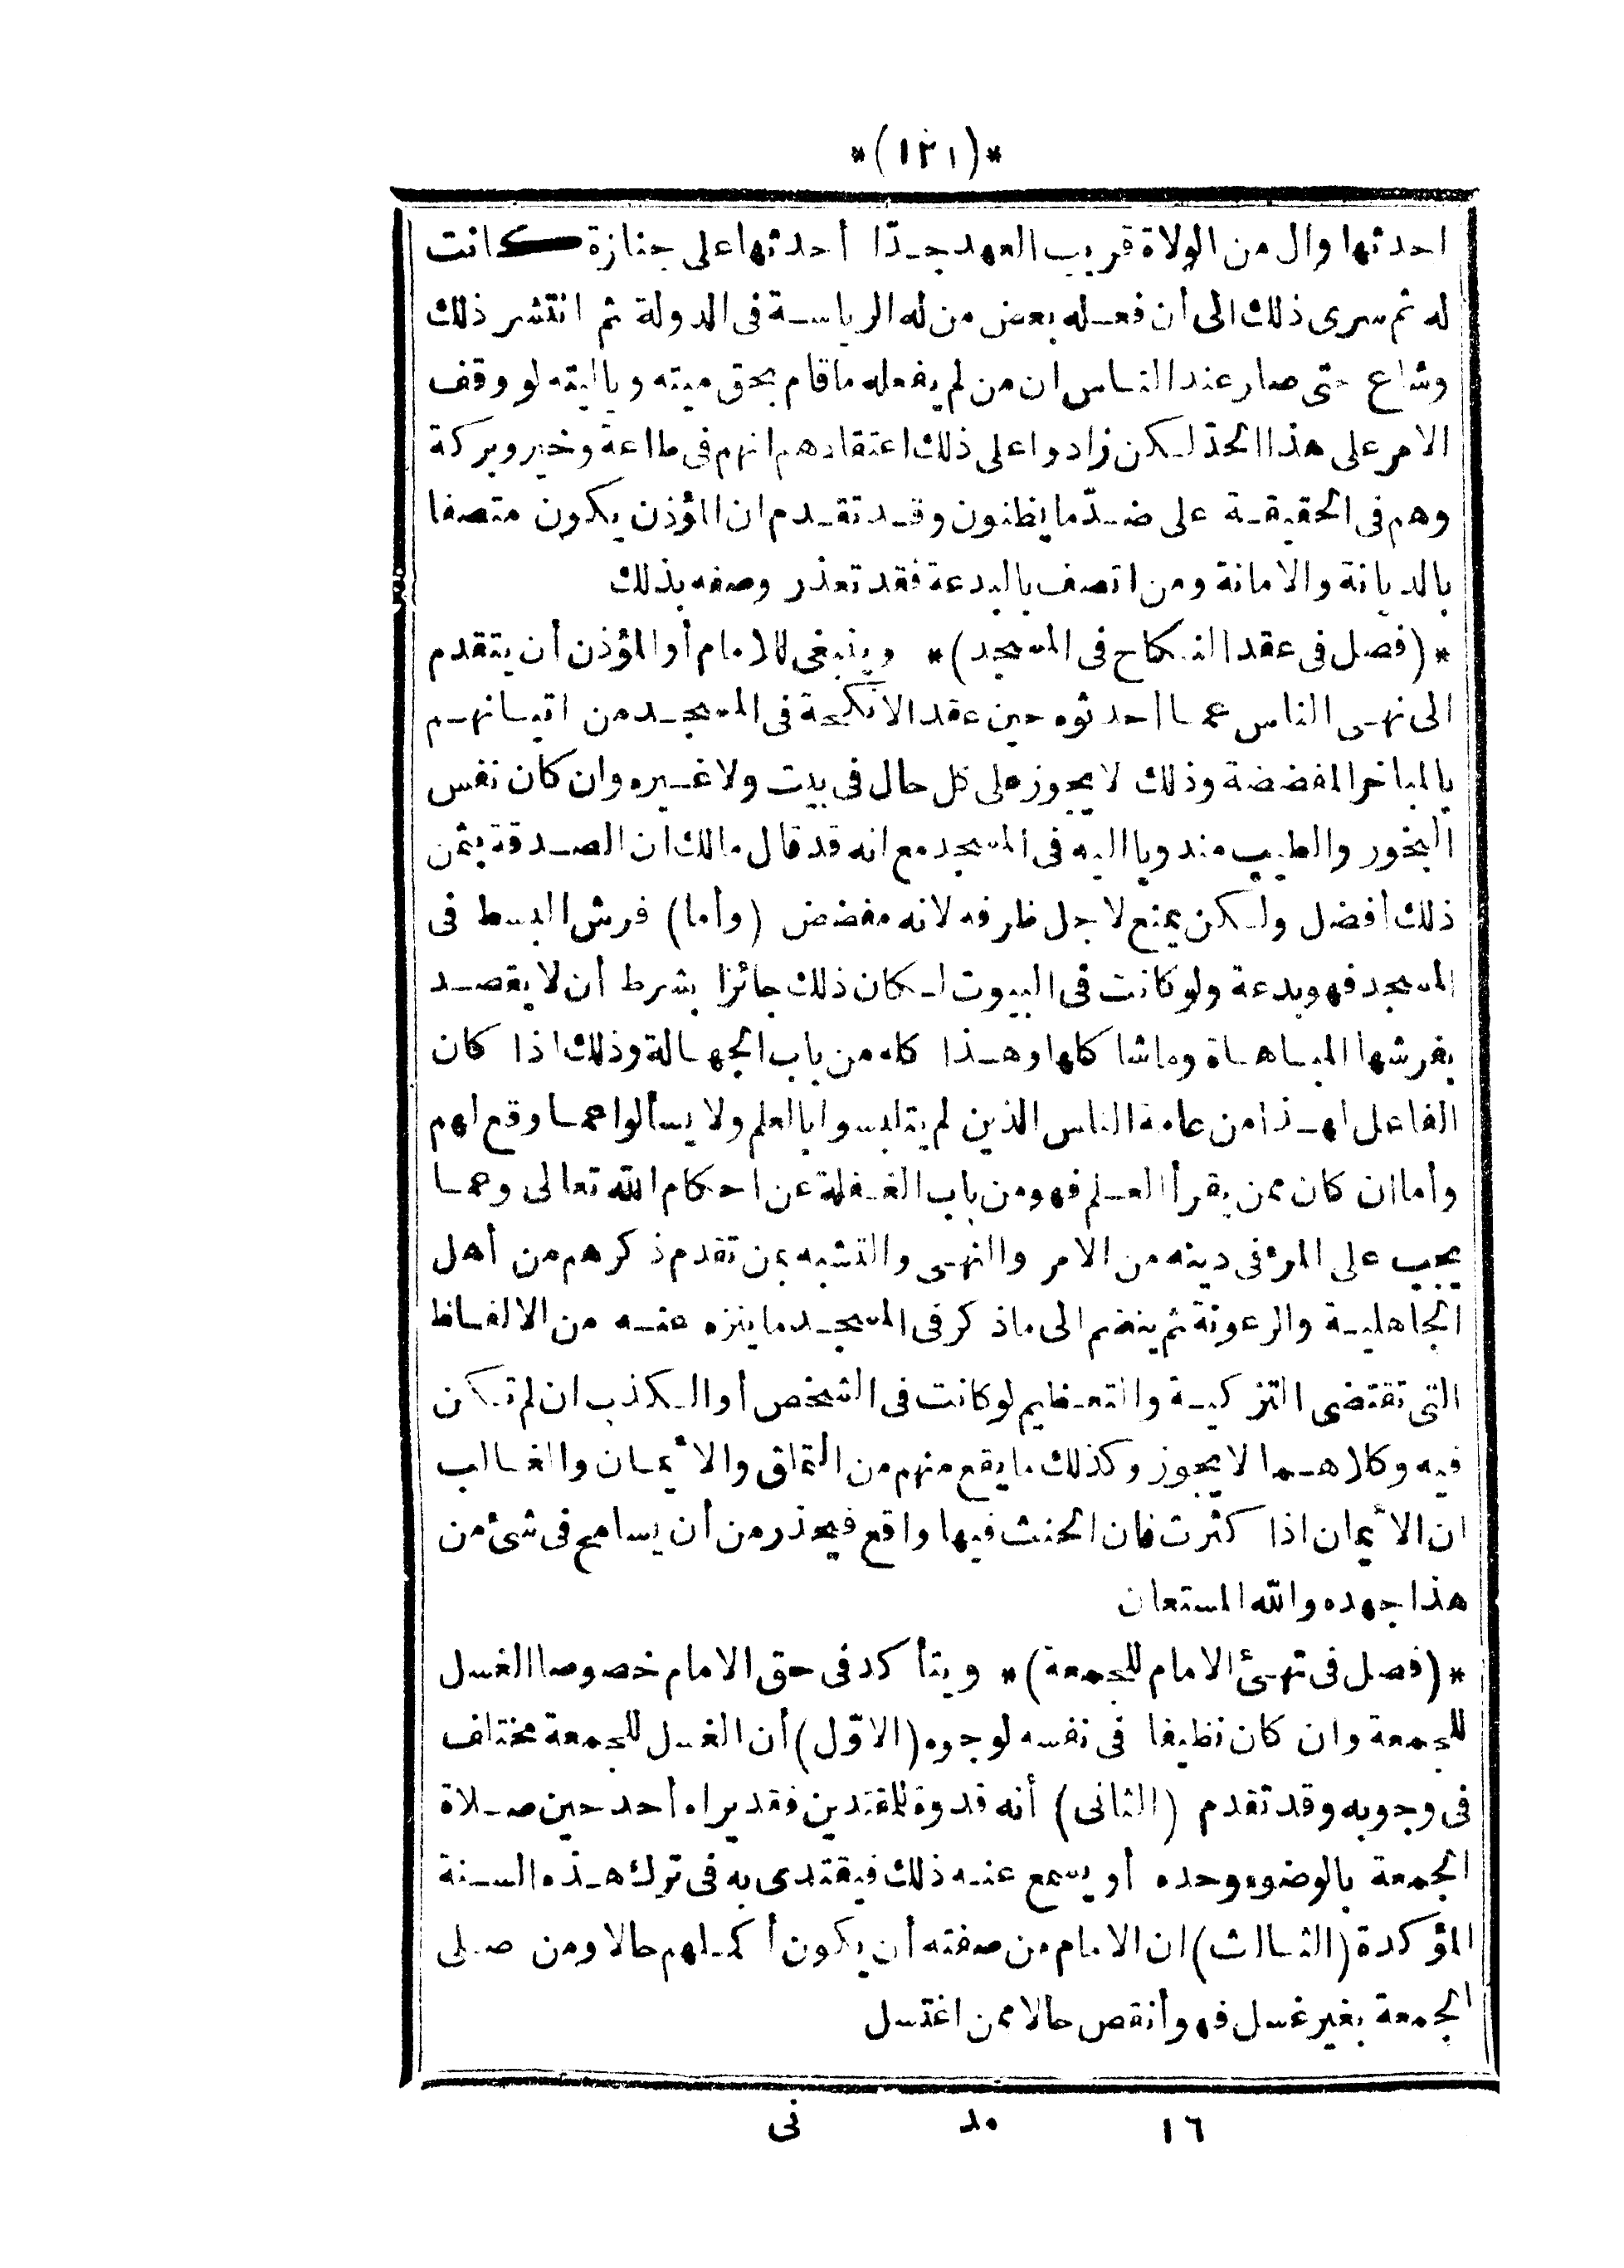 *(١٢١)*
احدثها وال من الولاة قريب العهد جدّا أحدثها على جنازة كانت
له ثم سرى ذلك الى أن فعله بعض من له الرياسة فى الدولة ثم انتشر ذلك
وشاع حتى صار عند الناس ان من لم يفعله ما قام بحق ميته وياليته لو وقف
الامر على هذا الحدّ لكن زادوا على ذلك اعتقادهم انهم فى طاعة وخير وبركة
وهم فى الحقيقة على ضدّ ما يظنون وقد تقدم ان المؤذن يكون متصفا
بالديانة والامانة ومن اتصف بالبدعة فقد تعذر وصفه بذلك
*(فصل فى عقد النكاح فى المسجد)* وينبغى للامام أو المؤذن أن يتقدم
الى نهى الناس عما احدثوه حين عقد الانكحة فى المسجد من اتيانهم
بالمباخر المفضضة وذلك لا يجوز على كل حال فى بيت ولا غيره وان كان نفس
البخور والطيب مندوبا اليه فى المسجد مع انه قد قال مالك ان الصدقة بثمن
ذلك أفضل ولكن يمنع لاجل ظرفه لانه مفضض (وأما) فرش البسط فى
المسجد فهو بدعة ولو كانت فى البيوت لكان ذلك جائزا بشرط أن لا يقصد
بفرشها المباهاة وما شاكلها وهذا كله من باب الجهالة وذلك اذا كان
الفاعل لهذا من عامة الناس الذين لم يتلبسوا بالعلم ولا يسألوا عما وقع لهم
وأما ان كان ممن يقرأ العلم فهو من باب الغفلة عن احكام الله تعالى وعما
يجب على المرء فى دينه من الامر والنهى والتشبه بمن تقدم ذكرهم من أهل
الجاهلية والرعونة ثم ينضم الى ما ذكر فى المسجد ما ينزه عنه من الالفاظ
التى تقتضى التزكية والتعظيم لو كانت فى الشخص أو الكذب ان لم تكن
فيه وكلاهما لا يجوز وكذلك ما يقع منهم من التملق والأيمان والغالب
ان الأيمان اذا كثرت فان الحنث فيها واقع فيحذر من أن يسامح فى شئ من
هذا جهده والله المستعان
*(فصل فى تهئ الامام للجمعة)* ويتأكد فى حق الامام خصوصا الغسل
للجمعة وان كان نظيفا فى نفسه لوجوه (الاوّل) أن الغسل للجمعة مختلف
فى وجوبه وقد تقدم (الثانى) أنه قدوة للمقتدين فقد يراه أحد حين صلاة
الجمعة بالوضوء وحده أو يسمع عنه ذلك فيقتدى به فى ترك هذه السنة
المؤكدة (الثالث) ان الامام من صفته أن يكون أكملهم حالا ومن صلى
الجمعة بغير غسل فهو أنقص حالا ممن اغتسل
١٦ مد نى